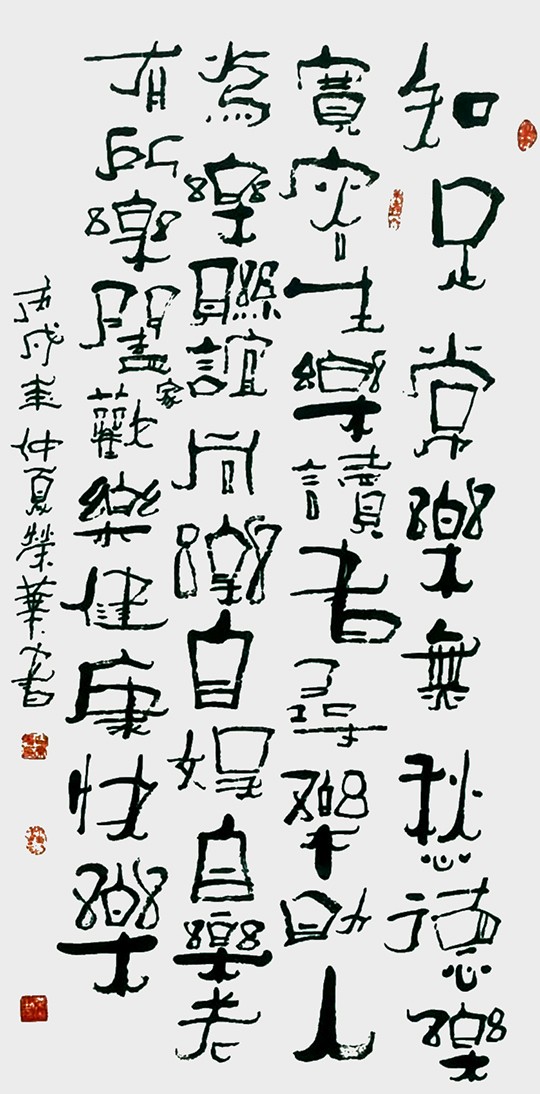 知足常樂無愁德樂
實生樂讀書尋樂助人
為樂聯誼同樂自娛自樂老
有所樂闔家歡樂健康快樂
丙戌年仲夏榮華書